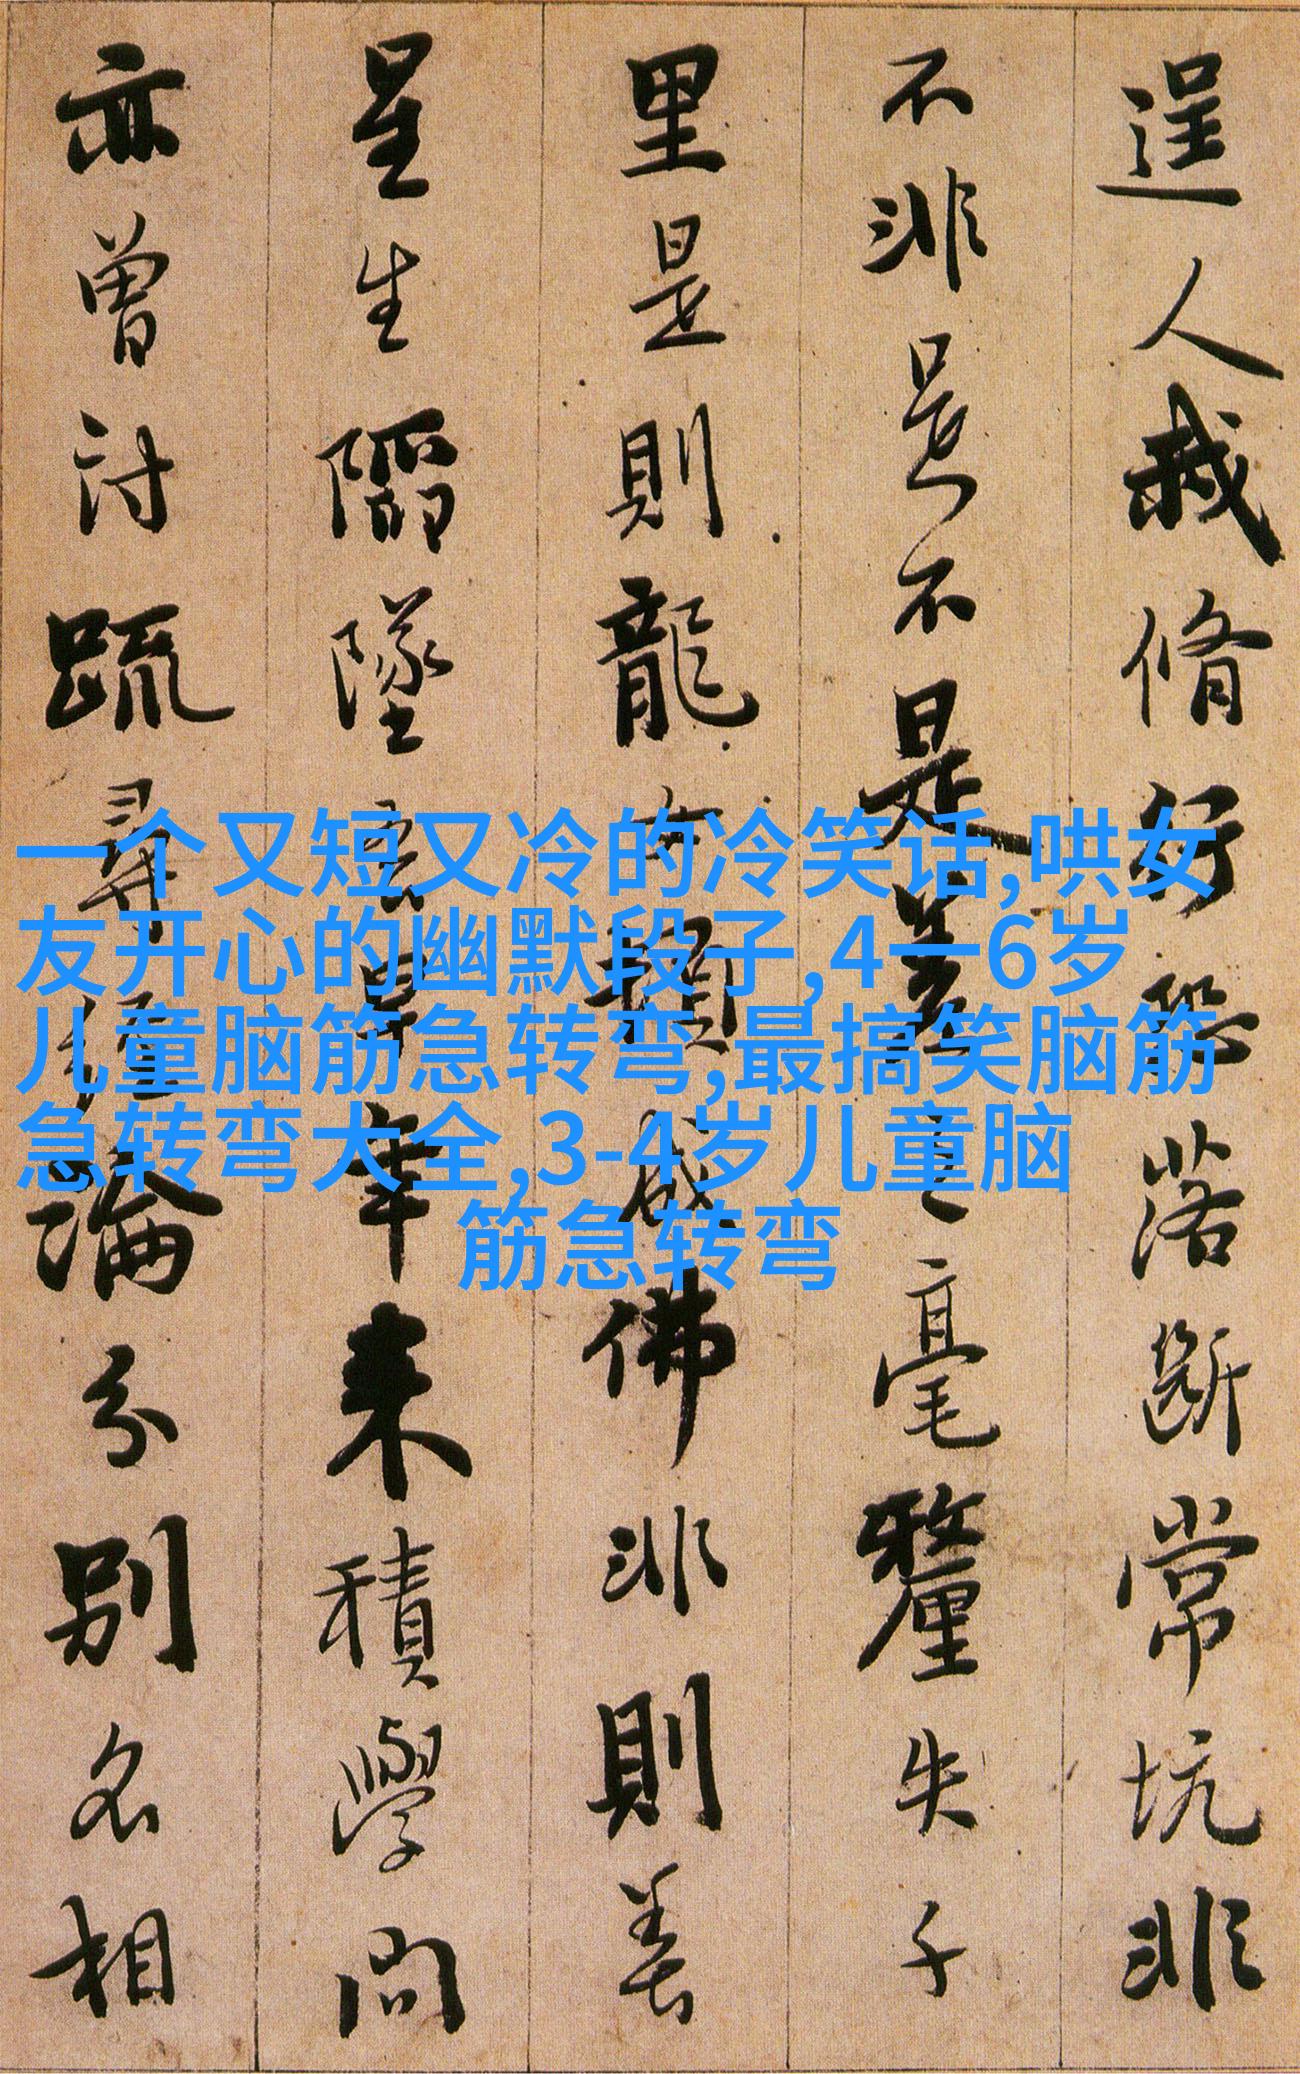 逞人我脩行恐落斷常坑非
不非是不是差之毫釐失千
里是則龍女頓成佛非則善
星生陷墜吾早年来積學問
亦曾討疏尋經論分別名相
一个又短又冷的冷笑话,哄女
友开心的幽默段子,4一6岁
儿童脑筋急转弯,最搞笑脑筋
急转弯大全,3-4岁儿童脑
筋急转弯